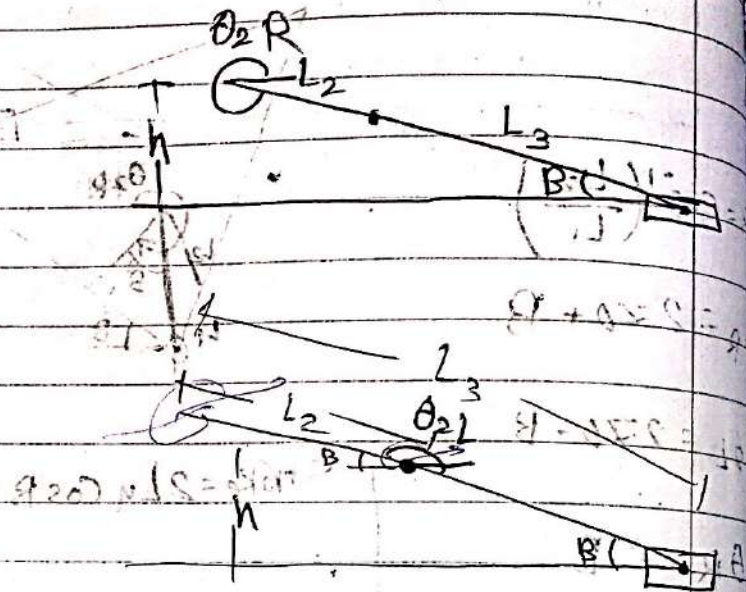 θ₂R
L₂
h
L₃
B
L₃
L₂
θ₂L
B
h
B